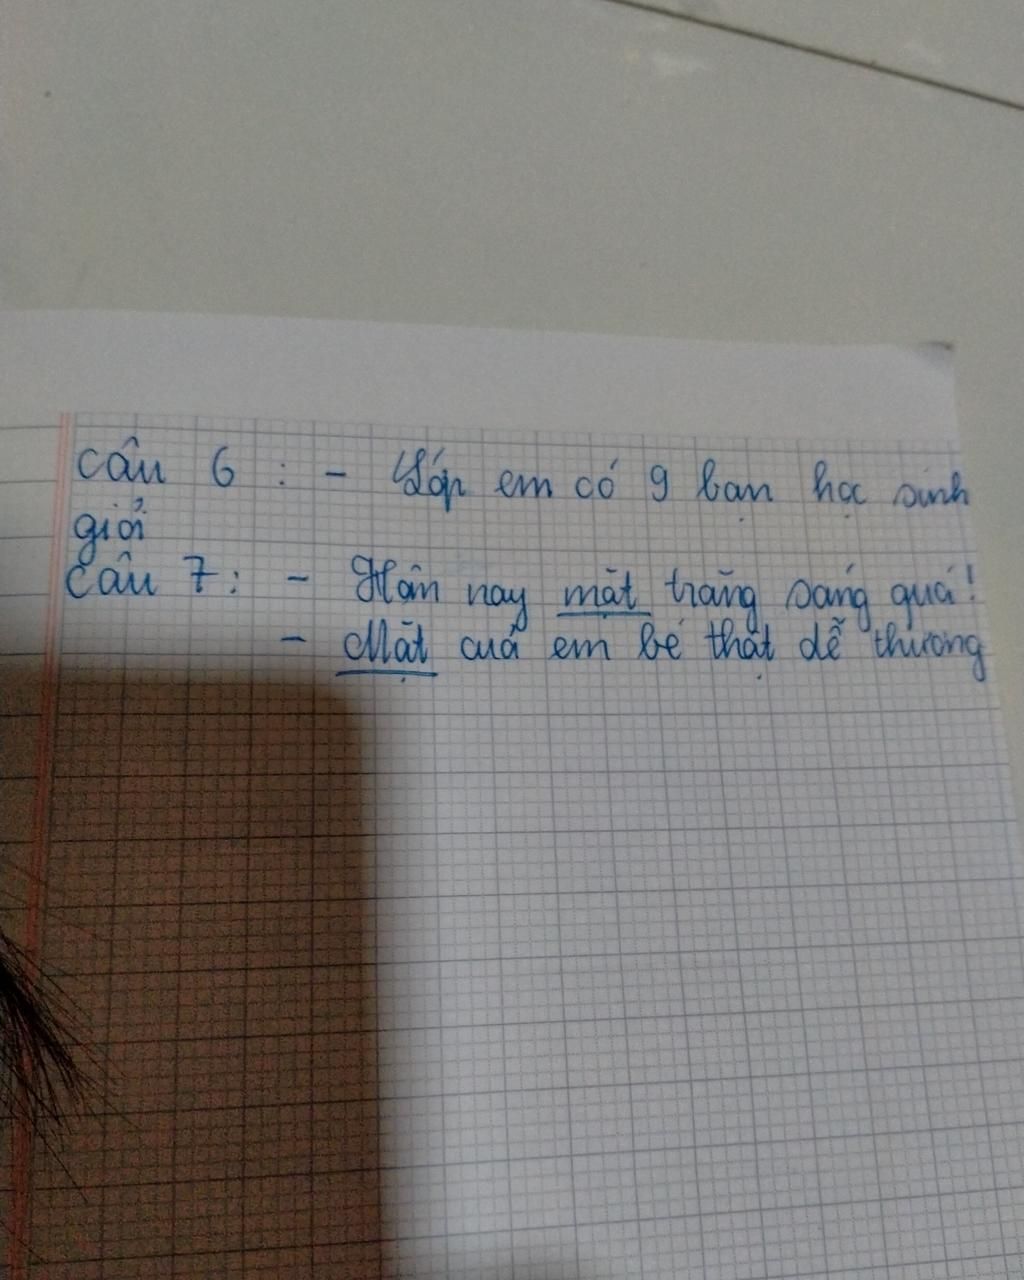 câu 6 : - Lớp em có 9 bạn học sinh
giỏi
câu 7 : - Hôm nay mặt trăng sáng quá !
- Mặt của em bé thật dễ thương